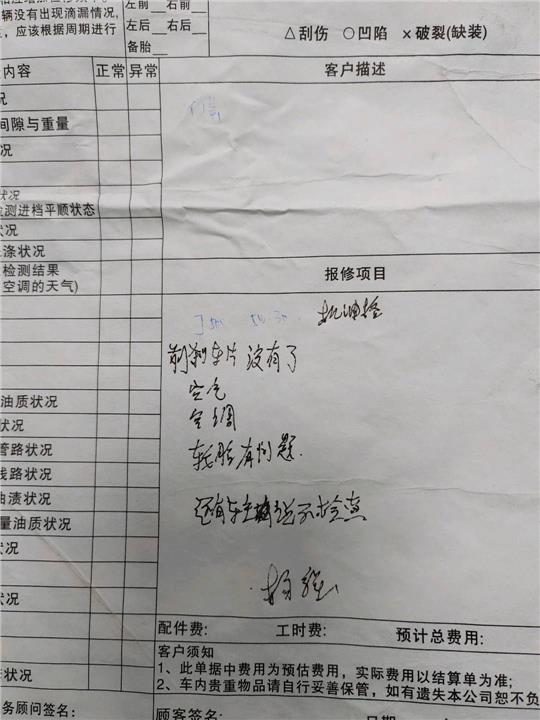 左前 右前
辆没有出现滴漏情况,
左后 右后
应该根据周期进行
备胎
△刮伤 ○凹陷 ×破裂(缺装)
内容 正常 异常 客户描述
况
间隙与重量
况
状况
检测进档平顺状态
状况
涤状况
检测结果
空调的天气)
报修项目
机油格
前刹车片 没有了
空气
空调
轮胎有问题.
油质状况
状况
管路状况
线路状况
油渍状况
量油质状况
还有车主说不检查
状况
状况
配件费: 工时费: 预计总费用:
客户须知
1、此单据中费用为预估费用，实际费用以结算单为准;
2、车内贵重物品请自行妥善保管，如有遗失本公司恕不负
状况
务顾问签名: 顾客签名: 日期